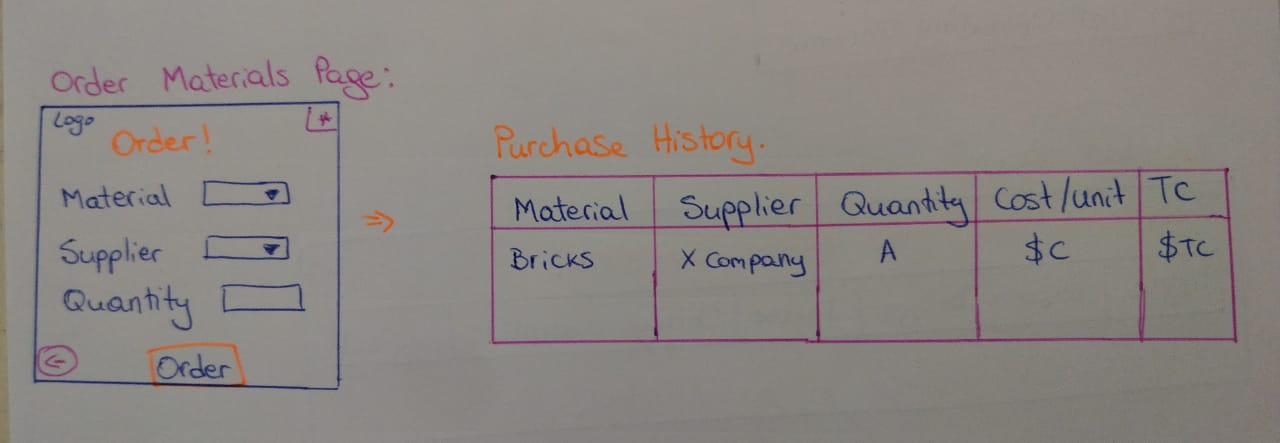 Order Materials Page:
Logo *
Order!
Material
Supplier
Quantity
Order
Purchase History.
Material Supplier Quantity Cost/unit TC
Bricks X Company A $C $TC